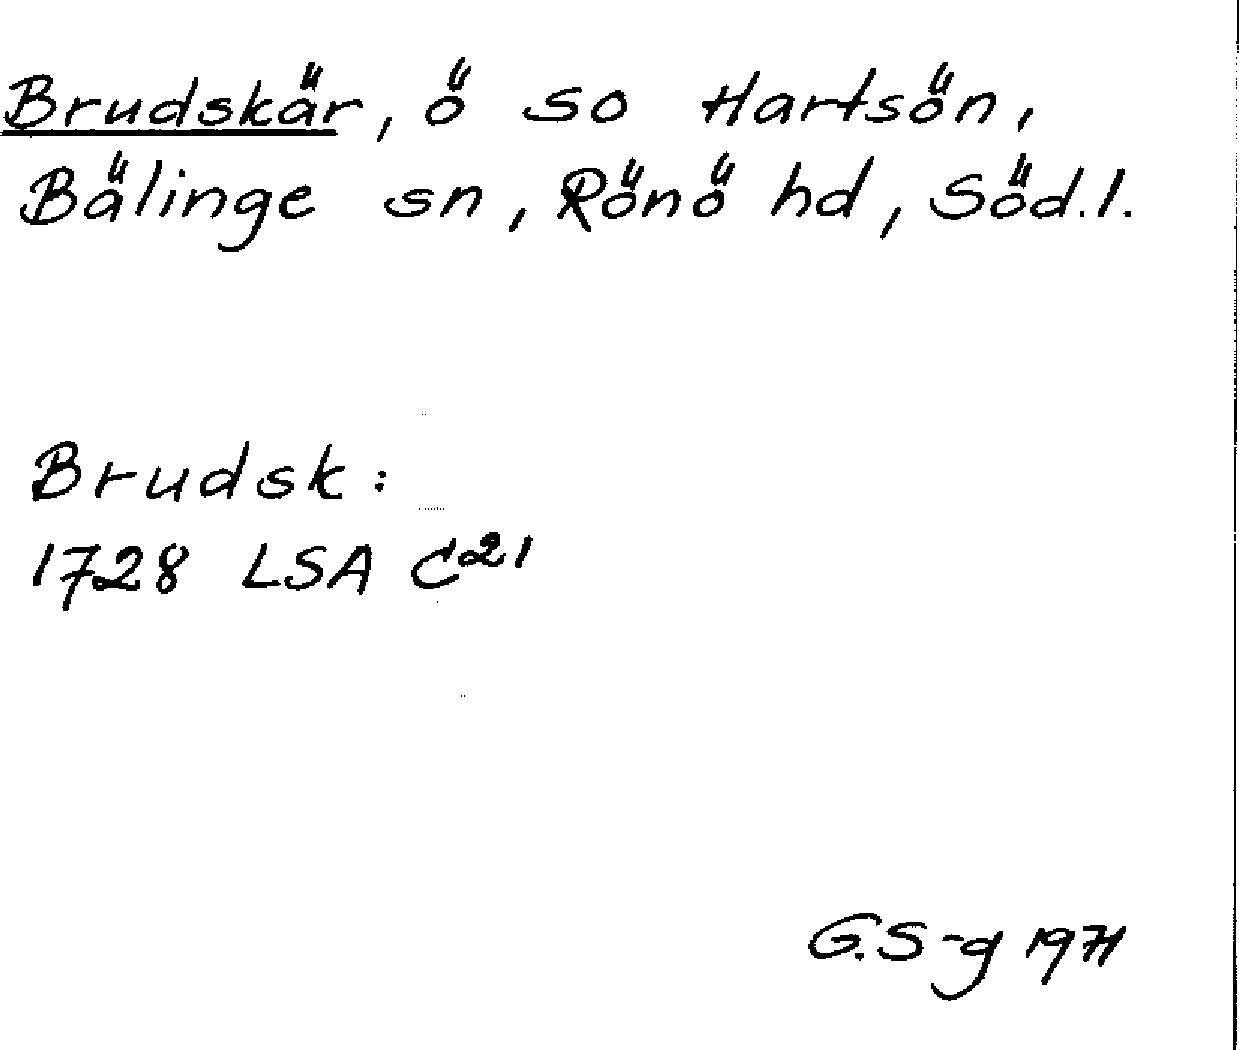 Brudskär, ö so Hartsön,
Bälinge sn, Rönö hd, Söd.l.
Brudsk:
1728 LSA C21
G.S-g 1971